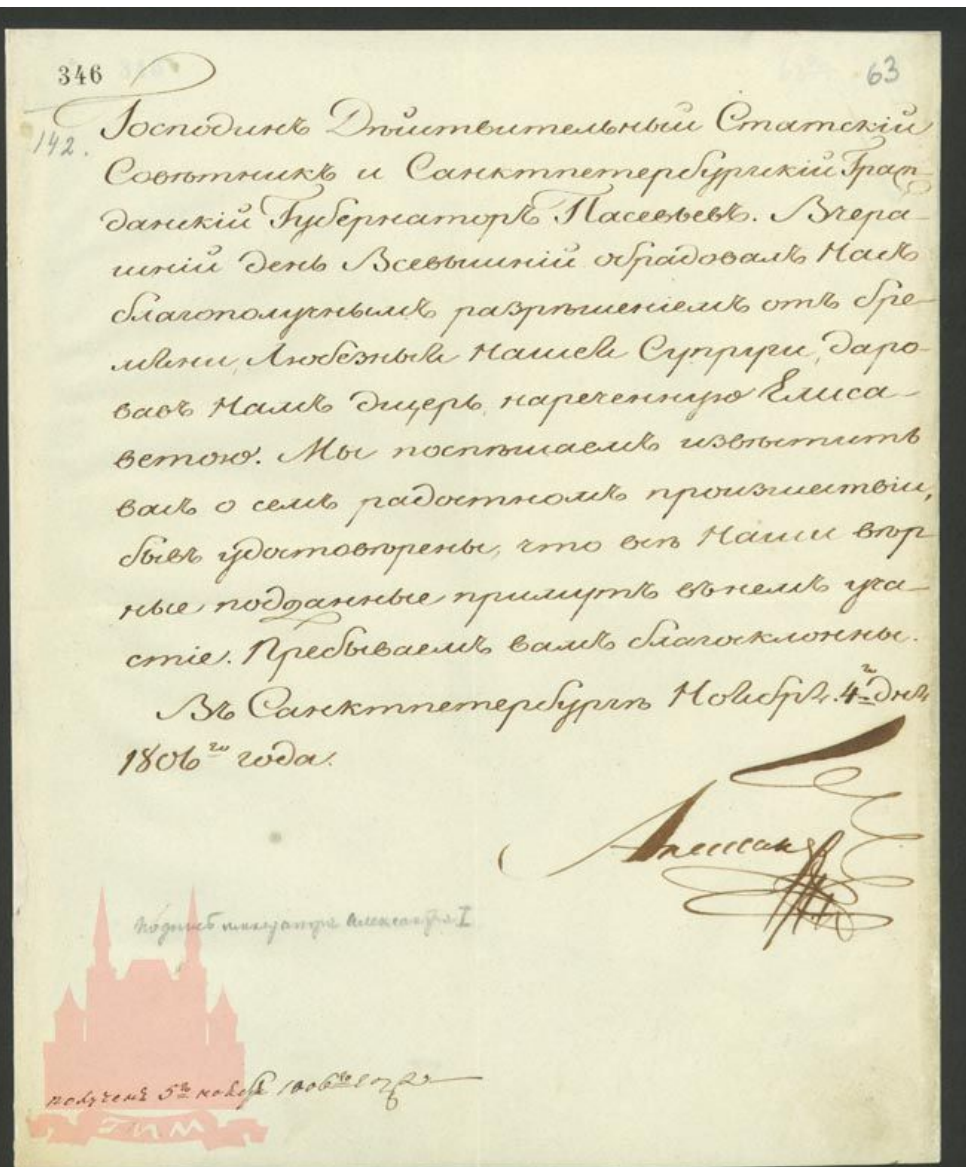 346
63
142.
Господинъ Дѣйствительный Статскій
Совѣтникъ и Санктпетербургскій Граж
данскій Губернаторъ Пасевьевъ. Вчера-
шній день Всевышній обрадовалъ Насъ
благополучнымъ разрѣшеніемъ отъ бре-
мени, Любезныя Нашея Супруги, даро-
вавъ Намъ дщерь, нареченную Елиса-
ветою. Мы поспѣшаемъ извѣстить
васъ о семъ радостномъ произшествіи,
бывъ удостовѣрены, что всѣ Наши вѣр
ные подданные примутъ въ немъ уча-
стіе. Пребываемъ вамъ благосклонны.
Въ Санктпетербургѣ Ноября. 4го дня
1806го года.
Александръ
Подпись императора Александра I
получено 5го ноября 1806го года
ГИМ